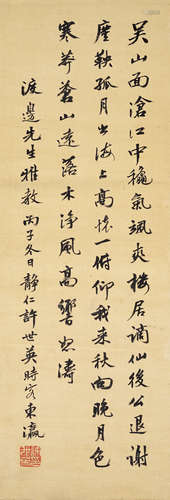 吴山面滄江中穐氣颯爽樓居謫仙後公退謝
塵鞅孤月出海上高懷一俯仰我來秋向晚月色
寒莽蒼山遠落木净風高響怒濤
渡邊先生雅教 丙子冬日 静仁許世英時客東瀛